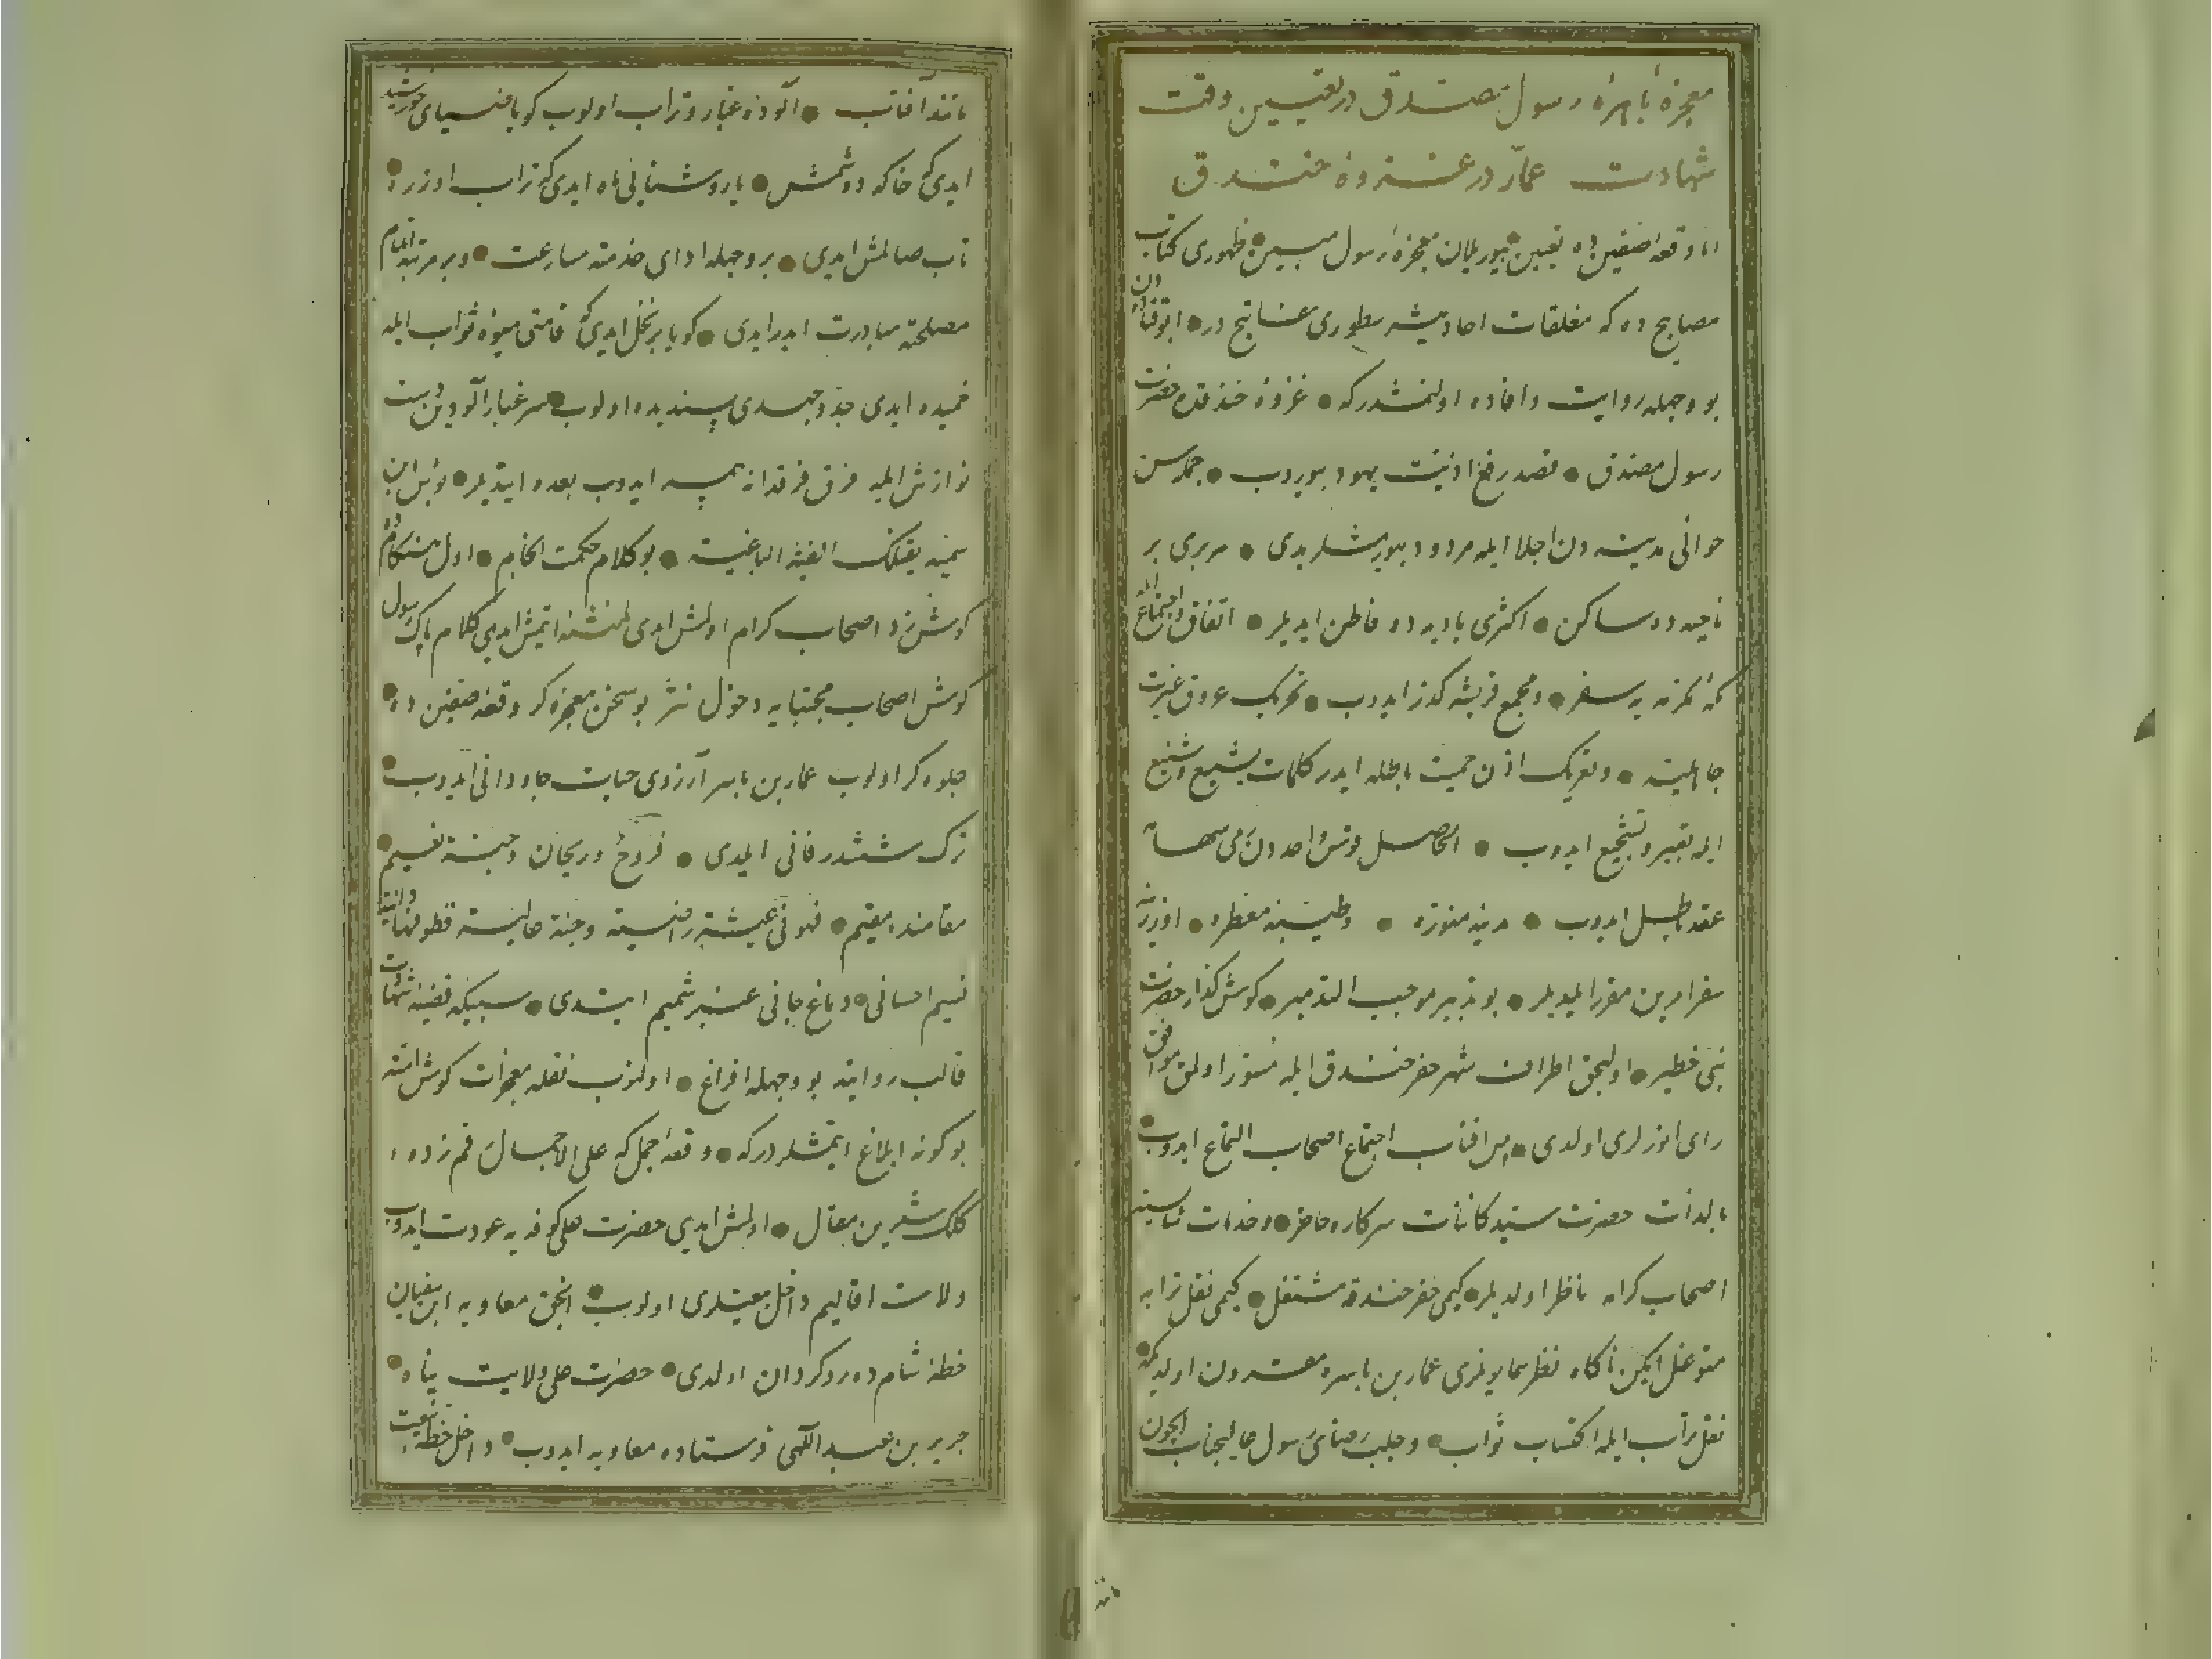 معجزۀ باهرۀ رسول مصدق در تعیین وقت
شهادت عمار در غزوۀ خندق
اما وقعۀ صفین ده تعیین بیوریلان معجزۀ رسول مبین ظهوری کتاب
مصابیح ده که مغلقات احادیثه سطوری مفاتیح در ابو قتاده دن
بو وجهله روایت و افاده اولنمشدر که غزوۀ خندقده حضرت
رسول مصدق قصد رفع اذیت یهود بیوروب جمله سن
حوالی مدینه دن اجلا ایله مردود بیورمشلریدی هر بری بر
ناحیه ده ساکن اکثری بادیه ده قاطن ایدیلر اتفاق و اجتماع ایله
مکۀ مکرمه یه سفر و مجمع قریشه گذر ایدوب تحریک عروق غیرت
جاهلیه و تعریک اذن حمیت باطله ایدر کلمات بشیع و شنیع
ایله تعییر و تشجیع ایدوب الحاصل قوس واحد دن رمی سهامه
عقد باطل ایدوب مدینۀ منوره و طیبۀ معطره اوزرینه
سفر امرین مقرر ایلدیلر بو تدبیر موجب التدمیر کوش کذار حضرت
نبی خطیر اولیجق اطراف شهر حفر خندق ایله مستور اولمق موافق
رای انورلری اولدی پس آفتاب اجتماع اصحاب التماع ایدوب
بالذات حضرت سید کائنات سرکاره حاضر و خدمات شایسته
اصحاب کرامه ناظر اولدیلر کیمی حفر خندقه مشتغل کیمی نقل ترابه
متوغل ایکن ناکاه نظر همایونلری عمار بن یاسره مقرون اولدیکه
نقل تراب ایله اکتساب ثواب و جلب رضای رسول عالیجناب ایچون
مانند
مانند آفتاب آلوده غبار و تراب اولوب کویا ضیای خورشید
ایدی که خاکه دوشمش یا روشنایی ماه ایدی که تراب اوزره
تاب صالمش ایدی بر وجهله ادای خدمته مسارعت و بر مرتبه اتمام
مصلحته مبادرت ایدر ایدی کویا بر نخل ایدی که قامتی میوۀ ثواب ایله
خمیده ایدی جد و جهدی پسندیده اولوب سر غبار آلودین دست
نوازش ایله فرق فرقدانه همسر ایدوب بعده ایتدیلر بؤس ابن
سمیه یقتلک الفئة الباغیة بو کلام حکمت انجام اول هنکامده
کوش زد اصحاب کرام اولمش ایدی کلام پاک رسول
کوش اصحاب مجتبایه دخول بو سخن معجزه کر وقعۀ صفین ده
جلوه کر اولوب عمار بن یاسر آرزوی حیات جاودانی ایدوب
ترک ششدر فانی ایلدی فروح و ریحان و جنة نعیم
مقامنده مقیم فهو فی عیشة راضیة و جنة عالیة قطوفها دانیه
نسیم احسانی دماغ جانی عنبر شمیم ایتدی سبیکۀ قضیۀ شهادت
قالب روایته بو وجهله افراغ اولنوب نقلۀ معجزات کوش امته
بو کونه ابلاغ ایتمشلردر که وقعۀ جمل که علی الاجمال رقم زده
کلک شیرین مقال اولمش ایدی حضرت علی کوفه یه عودت ایدوب
ولات اقالیم داخل بیعتلری اولوب انجق معاویه ابن سفیان
خطۀ شام ده روکردان اولدی حضرت علی ولایت پناه
جریر بن عبد اللهی فرستاده معاویه ایدوب داخل خطۀ بیعت